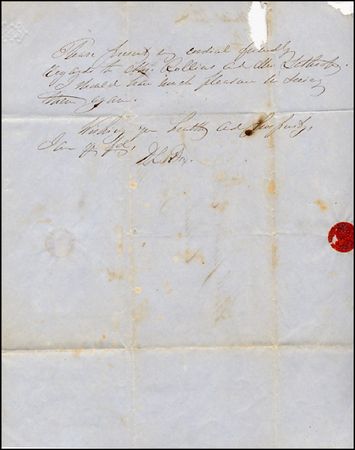 Please present my cordial friendly
regards to Mr. Collins and Mr.
I should have much pleasure in seeing
them again.
Wishing you health and prosperity
I am yr